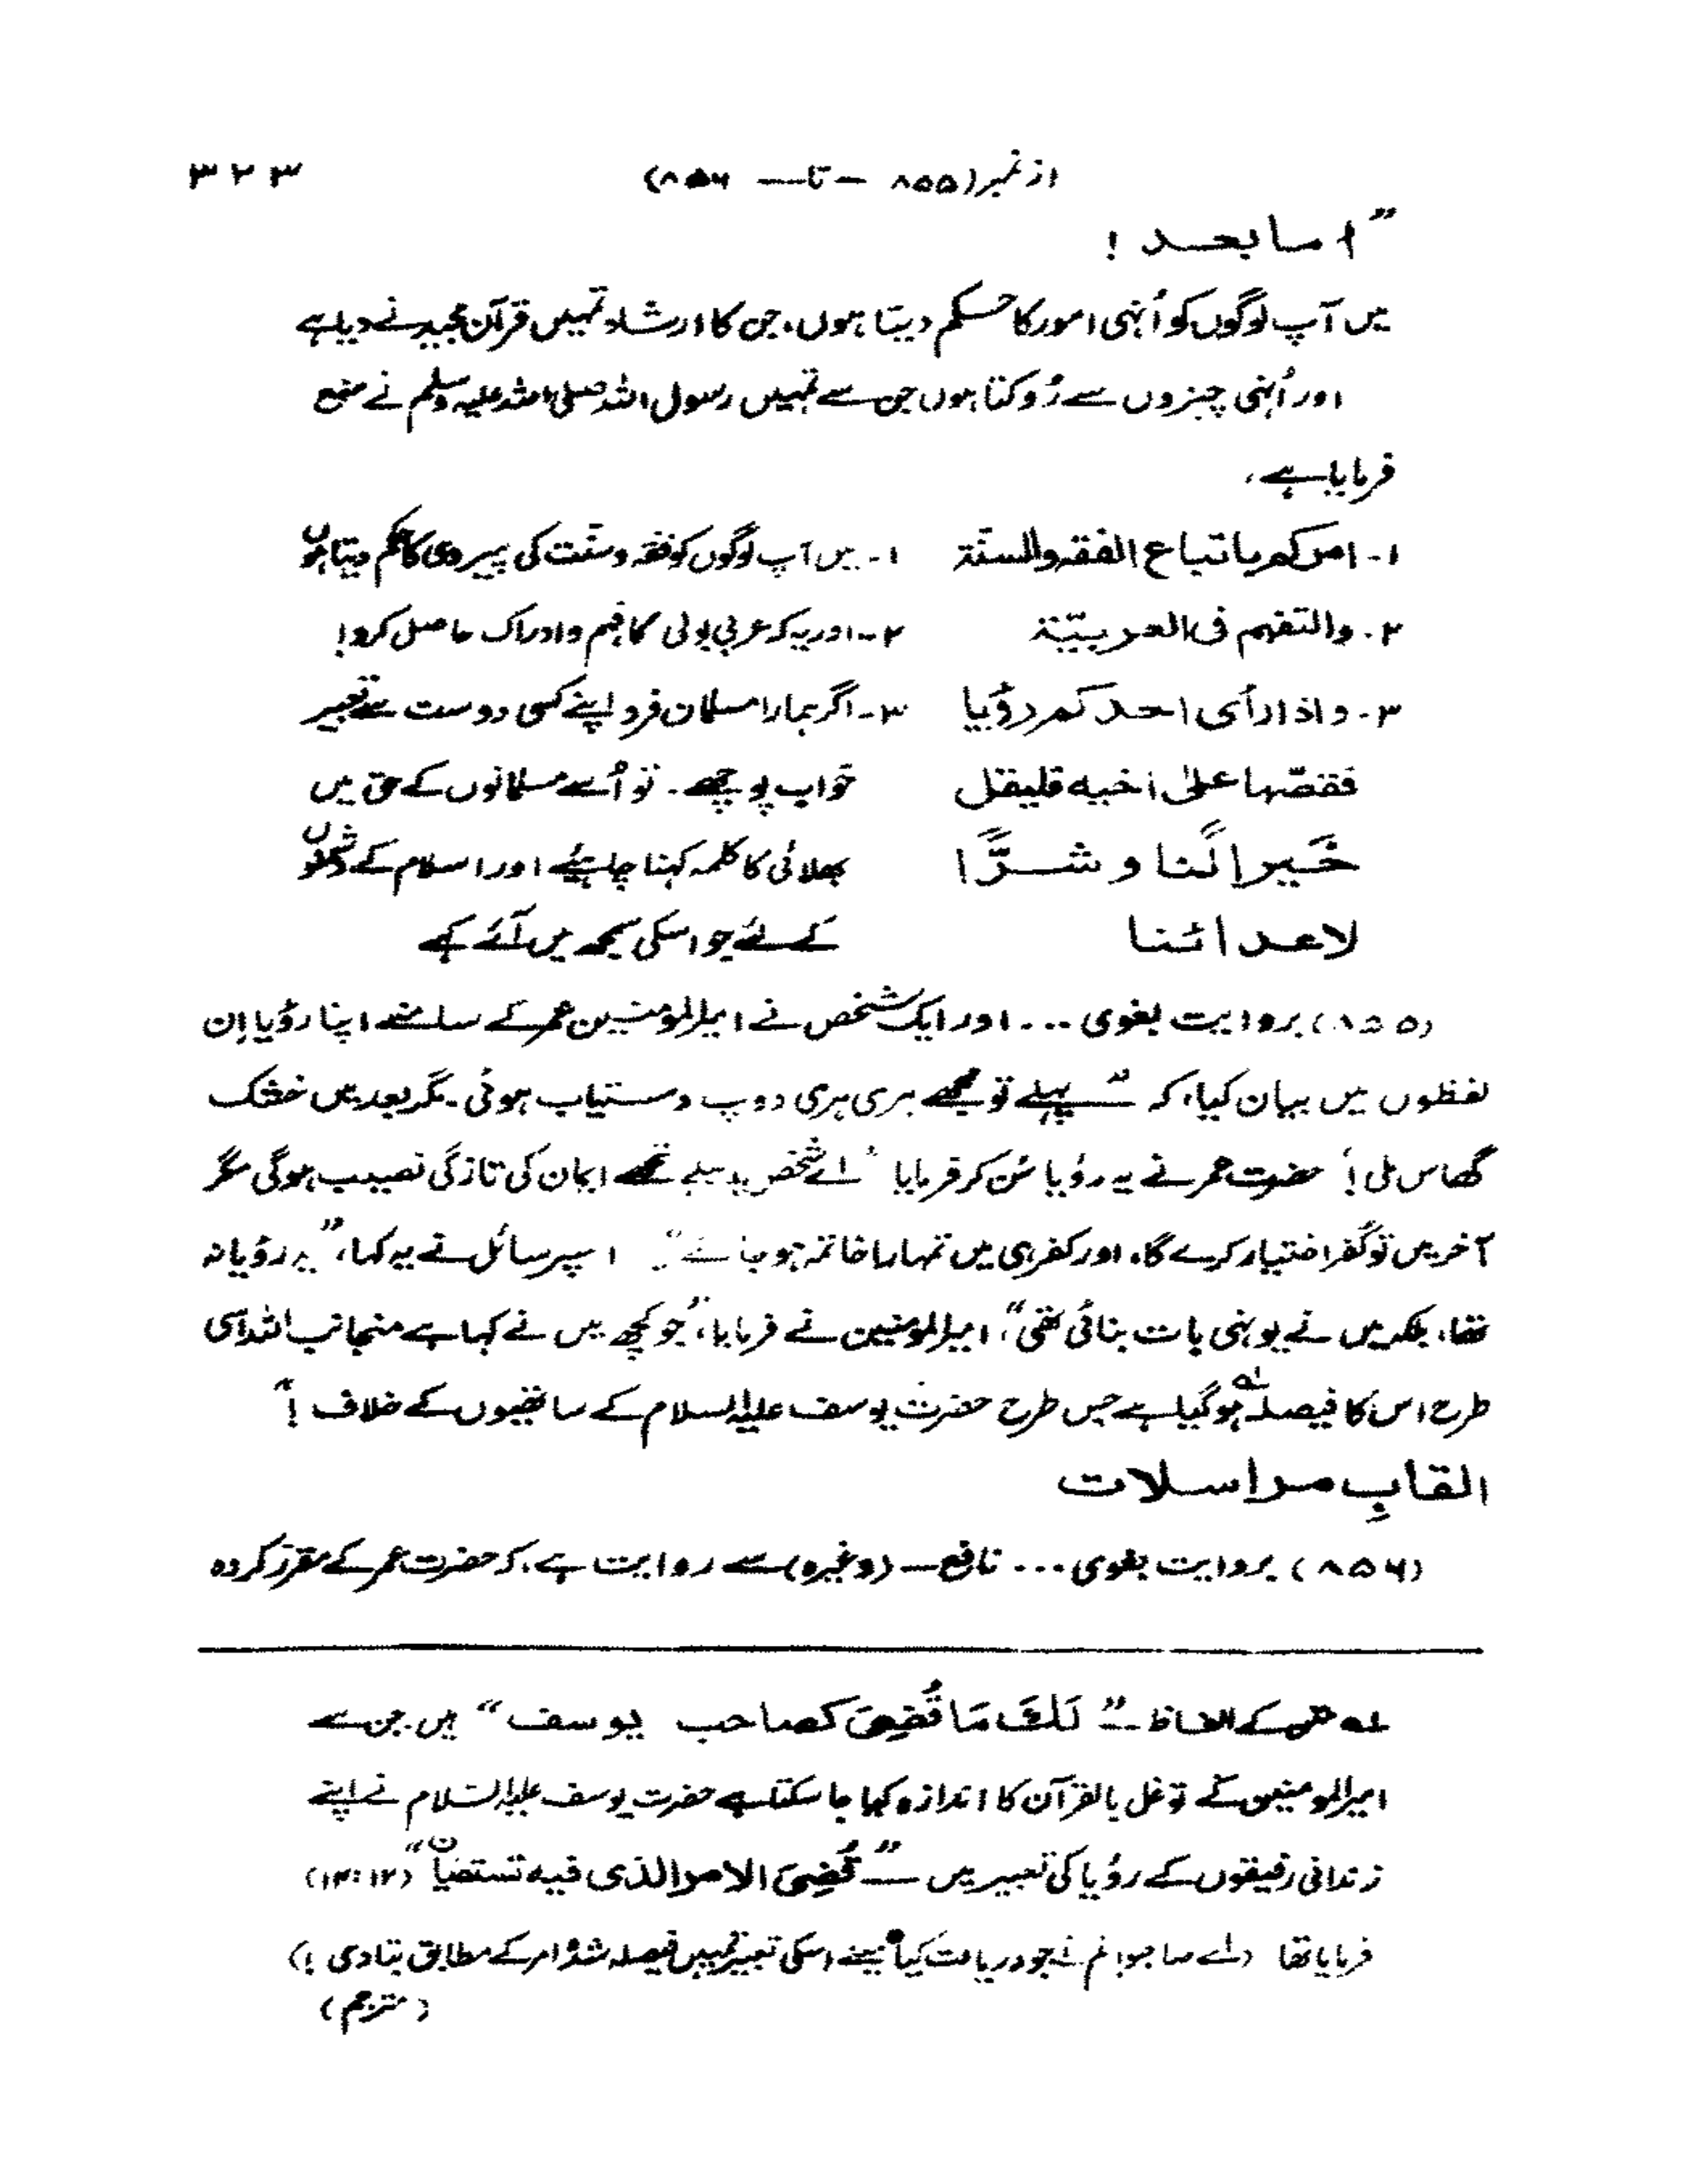 از نمبر (۸۵۵ — تا — ۸۵۶) ۳۲۳
”اما بعد !
میں آپ لوگوں کو اُنہی امور کا حکم دیتا ہوں، جن کا ارشاد تمہیں قرآن مجید نے دیا ہے
اور اُنہی چیزوں سے رُوکتا ہوں جن سے تمہیں رسول اللہ صلی اللہ علیہ وسلم نے منع
فرمایا ہے،
۱- امرکم باتباع الفقہ والسنّۃ ۱- میں آپ لوگوں کو فقہ و سنّت کی پیروی کا حکم دیتا ہوں
۲- والتفہم فی العربیّۃ ۲- اور یہ کہ عربی بولی کا فہم و ادراک حاصل کرو!
۳- واذا رأی احدکم رؤیا ۳- اگر ہمارا مسلمان فرد اپنے کسی دوست سے تعبیر
فقصّہا علیٰ اخیہ فلیقل خواب پوچھے۔ تو اُسے مسلمانوں کے حق میں
خَیراً لَّنا و شرًّا بھلائی کا کلمہ کہنا چاہیئے اور اسلام کے دشمنوں
لاعدائنا کے لئے جو اسکی سمجھ میں آئے کہے
(۸۵۵) بروایت بغوی ... اور ایک شخص نے امیرالمؤمنین عمر کے سامنے اپنا رؤیا اِن
لفظوں میں بیان کیا، کہ ”پہلے تو مجھے ہری ہری دوپ دستیاب ہوئی۔ مگر بعد میں خشک
گھاس ملی!“ حضرت عمر نے یہ رؤیا سُن کر فرمایا ”اے شخص پہلے تجھے ایمان کی تازگی نصیب ہوگی مگر
آخر میں تو کُفر اختیار کرے گا، اور کفر ہی میں تمہارا خاتمہ ہو جائے“۔ اسپر سائل نے یہ کہا، ”یہ رؤیا نہ
تھا، بلکہ میں نے یونہی بات بنائی تھی“، امیرالمؤمنین نے فرمایا، ”جو کچھ میں نے کہا ہے منجانب اللہ اسی
طرح اس کا فیصلہ لہ ہو گیا ہے جس طرح حضرت یوسف علیہ السلام کے ساتھیوں کے خلاف!“
القابِ مراسلات
(۸۵۶) بروایت بغوی ... نافع — (وغیرہ) سے روایت ہے، کہ حضرت عمر کے مقرر کردہ
لہ متن کے الفاظ — ”لَکَ مَا قُضِیَ کصاحب یوسف“ ہیں۔ جن سے
امیرالمومنین کے توغل بالقرآن کا اندازہ کیا جا سکتا ہے حضرت یوسف علیہ السّلام نے اپنے
زندانی رفیقوں کے رؤیا کی تعبیر میں — ”قُضِیَ الامر الذی فیہ تستفتیان“ (۱۲:۴۱)
فرمایا تھا (اے صاحبو! تم نے جو دریافت کیا میںنے اسکی تعبیر تمہیں فیصلہ شدہ امر کے مطابق بتا دی!)
(مترجم)